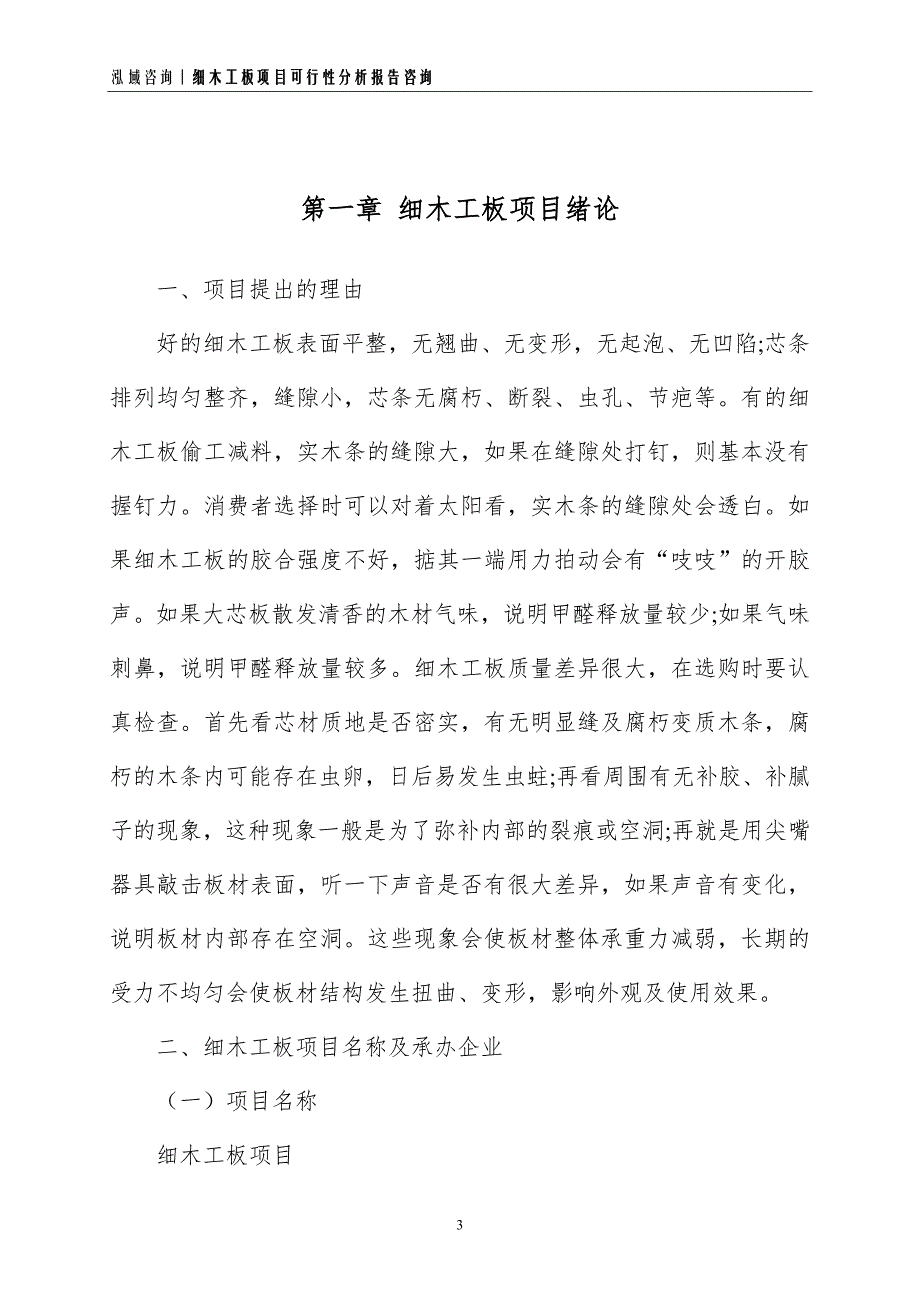 泓域咨询|细木工板项目可行性分析报告咨询
第一章 细木工板项目绪论
一、项目提出的理由
好的细木工板表面平整，无翘曲、无变形，无起泡、无凹陷;芯条
排列均匀整齐，缝隙小，芯条无腐朽、断裂、虫孔、节疤等。有的细
木工板偷工减料，实木条的缝隙大，如果在缝隙处打钉，则基本没有
握钉力。消费者选择时可以对着太阳看，实木条的缝隙处会透白。如
果细木工板的胶合强度不好，掂其一端用力拍动会有“吱吱”的开胶
声。如果大芯板散发清香的木材气味，说明甲醛释放量较少;如果气味
刺鼻，说明甲醛释放量较多。细木工板质量差异很大，在选购时要认
真检查。首先看芯材质地是否密实，有无明显缝及腐朽变质木条，腐
朽的木条内可能存在虫卵，日后易发生虫蛀;再看周围有无补胶、补腻
子的现象，这种现象一般是为了弥补内部的裂痕或空洞;再就是用尖嘴
器具敲击板材表面，听一下声音是否有很大差异，如果声音有变化，
说明板材内部存在空洞。这些现象会使板材整体承重力减弱，长期的
受力不均匀会使板材结构发生扭曲、变形，影响外观及使用效果。
二、细木工板项目名称及承办企业
（一）项目名称
细木工板项目
3